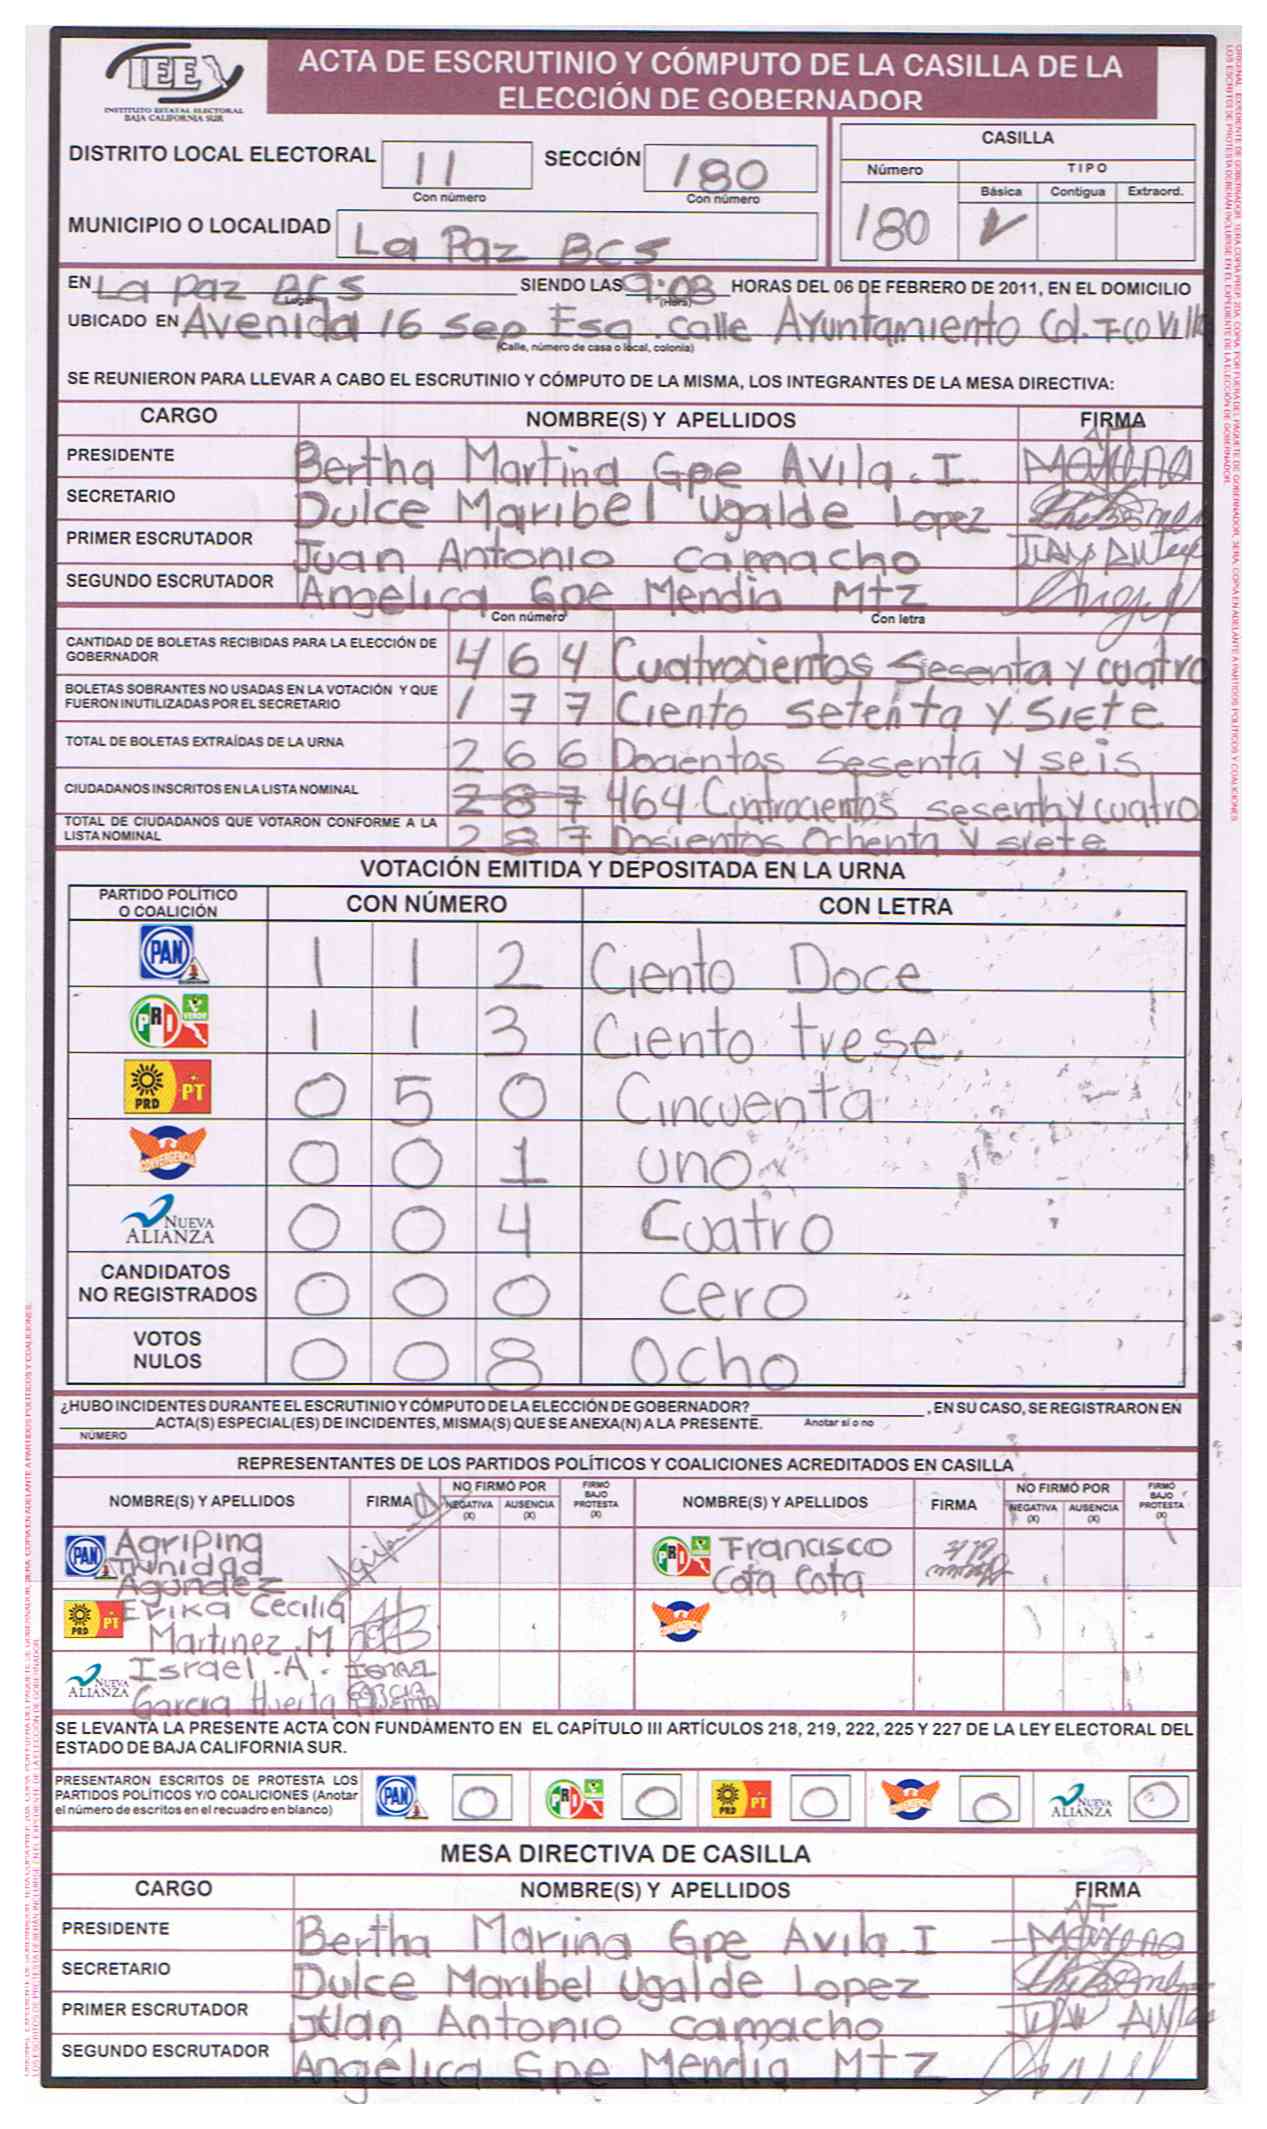 IEE
INSTITUTO ESTATAL ELECTORAL
BAJA CALIFORNIA SUR
ACTA DE ESCRUTINIO Y CÓMPUTO DE LA CASILLA DE LA
ELECCIÓN DE GOBERNADOR
DISTRITO LOCAL ELECTORAL 11 SECCIÓN 180
Con número Con número
CASILLA
Número TIPO
Básica Contigua Extraord.
180
MUNICIPIO O LOCALIDAD La Paz BCS
EN La Paz BCS SIENDO LAS 9:03 HORAS DEL 06 DE FEBRERO DE 2011, EN EL DOMICILIO
Lugar (Hora)
UBICADO EN Avenida 16 Sep Esq. calle Ayuntamiento Col. Fco Villa
(Calle, número de casa o local, colonia)
SE REUNIERON PARA LLEVAR A CABO EL ESCRUTINIO Y CÓMPUTO DE LA MISMA, LOS INTEGRANTES DE LA MESA DIRECTIVA:
CARGO NOMBRE(S) Y APELLIDOS FIRMA
PRESIDENTE Bertha Martina Gpe Avila. I.
SECRETARIO Dulce Maribel Ugalde Lopez
PRIMER ESCRUTADOR Juan Antonio Camacho
SEGUNDO ESCRUTADOR Angelica Gpe Mendia Mtz
Con número Con letra
CANTIDAD DE BOLETAS RECIBIDAS PARA LA ELECCIÓN DE
GOBERNADOR 4 6 4 Cuatrocientos Sesenta y cuatro
BOLETAS SOBRANTES NO USADAS EN LA VOTACIÓN Y QUE
FUERON INUTILIZADAS POR EL SECRETARIO 1 7 7 Ciento Setenta y Siete
TOTAL DE BOLETAS EXTRAÍDAS DE LA URNA 2 6 6 Docientos Sesenta y seis
CIUDADANOS INSCRITOS EN LA LISTA NOMINAL 287 464 Cuatrocientos sesenta y cuatro
TOTAL DE CIUDADANOS QUE VOTARON CONFORME A LA
LISTA NOMINAL 2 8 7 Dosientos Ochenta y siete
VOTACIÓN EMITIDA Y DEPOSITADA EN LA URNA
PARTIDO POLÍTICO
O COALICIÓN CON NÚMERO CON LETRA
PAN 1 1 2 Ciento Doce
PRI VERDE 1 1 3 Ciento trese.
PRD PT 0 5 0 Cincuenta
CONVERGENCIA 0 0 1 uno
NUEVA ALIANZA 0 0 4 Cuatro
CANDIDATOS
NO REGISTRADOS 0 0 0 Cero
VOTOS
NULOS 0 0 8 Ocho
¿HUBO INCIDENTES DURANTE EL ESCRUTINIO Y CÓMPUTO DE LA ELECCIÓN DE GOBERNADOR? , EN SU CASO, SE REGISTRARON EN
ACTA(S) ESPECIAL(ES) DE INCIDENTES, MISMA(S) QUE SE ANEXA(N) A LA PRESENTE. Anotar sí o no
NÚMERO
REPRESENTANTES DE LOS PARTIDOS POLÍTICOS Y COALICIONES ACREDITADOS EN CASILLA
NOMBRE(S) Y APELLIDOS FIRMA NO FIRMÓ POR NEGATIVA (X) AUSENCIA (X) FIRMÓ BAJO PROTESTA (X)
NOMBRE(S) Y APELLIDOS FIRMA NO FIRMÓ POR NEGATIVA (X) AUSENCIA (X) FIRMÓ BAJO PROTESTA (X)
PAN Agripina
Trinidad
Agundez
PRI Francisco
Cota Cota
PRD PT Erika Cecilia
Martinez M
NUEVA ALIANZA Israel . A .
Garcia Huerta
SE LEVANTA LA PRESENTE ACTA CON FUNDAMENTO EN EL CAPÍTULO III ARTÍCULOS 218, 219, 222, 225 Y 227 DE LA LEY ELECTORAL DEL
ESTADO DE BAJA CALIFORNIA SUR.
PRESENTARON ESCRITOS DE PROTESTA LOS
PARTIDOS POLÍTICOS Y/O COALICIONES (Anotar
el número de escritos en el recuadro en blanco)
PAN 0 PRI 0 PRD PT 0 CONVERGENCIA 0 NUEVA ALIANZA 0
MESA DIRECTIVA DE CASILLA
CARGO NOMBRE(S) Y APELLIDOS FIRMA
PRESIDENTE Bertha Marina Gpe Avila. I
SECRETARIO Dulce Maribel Ugalde Lopez
PRIMER ESCRUTADOR Juan Antonio Camacho
SEGUNDO ESCRUTADOR Angélica Gpe Mendia Mtz